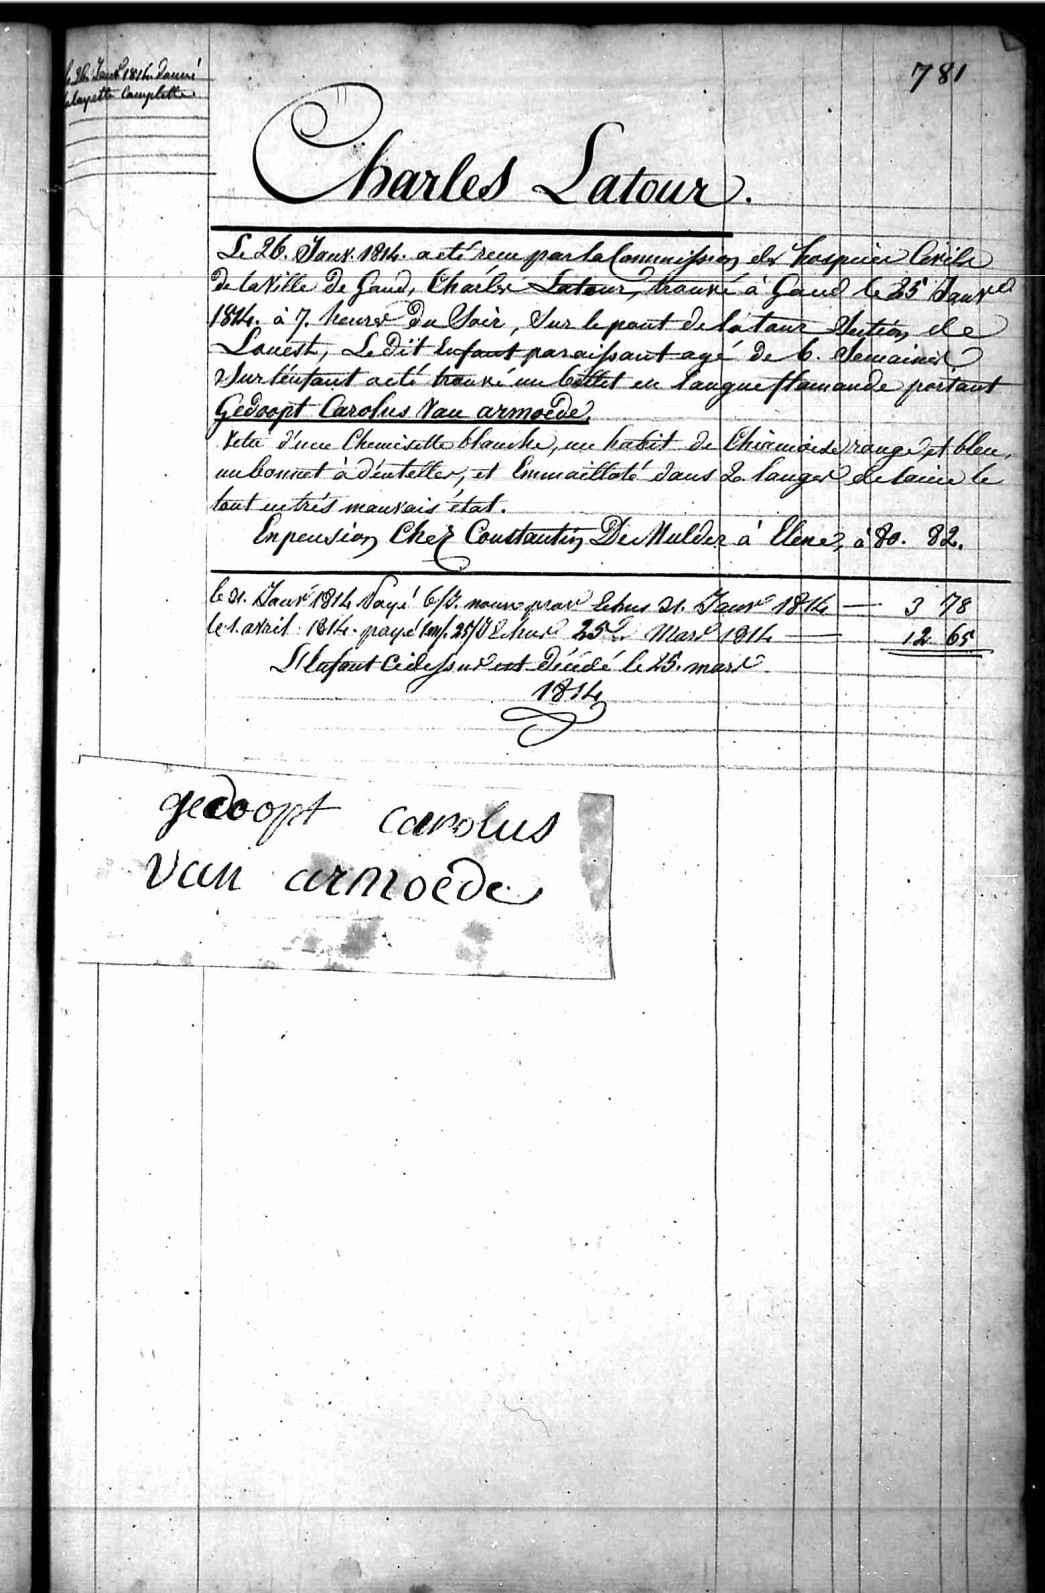 le 26. Janvr 1814. donné
la layette Complette.
781
Charles Latour.
Le 26. Janv. 1814. a été reçu par la Commission des hospices Civils
de la Ville de Gand, Charles Latour, trouvé à Gand le 25 Janvr
1814. à 7. heures du Soir, Sur le pont de la tour Section de
Louest, Le dit Enfant paraissant agé de 6. Semaines
Sur l'enfant a été trouvé un billet en langue flamande portant
Gedoopt Carolus Van armoede.
Vetu d'une Chemisette blanche, un habit de Chiamoise rouge et bleu,
un bonnet à dentelles, et Emmailloté dans 2 langes de laine le
tout en très mauvais état.
En pension Chez Constantin De Mulder à Elene, à 80. 82.
le 31. Janvr 1814 Payé 6/J. nourr pour Echus 31. Janvr 1814 — 3 78
le 1. avril 1814. payé 25/J Echus 25 Mars 1814 — 12 65
L'Enfant Cidessus est Décédé le 25. mars
1814
gedoopt carolus
van armoede